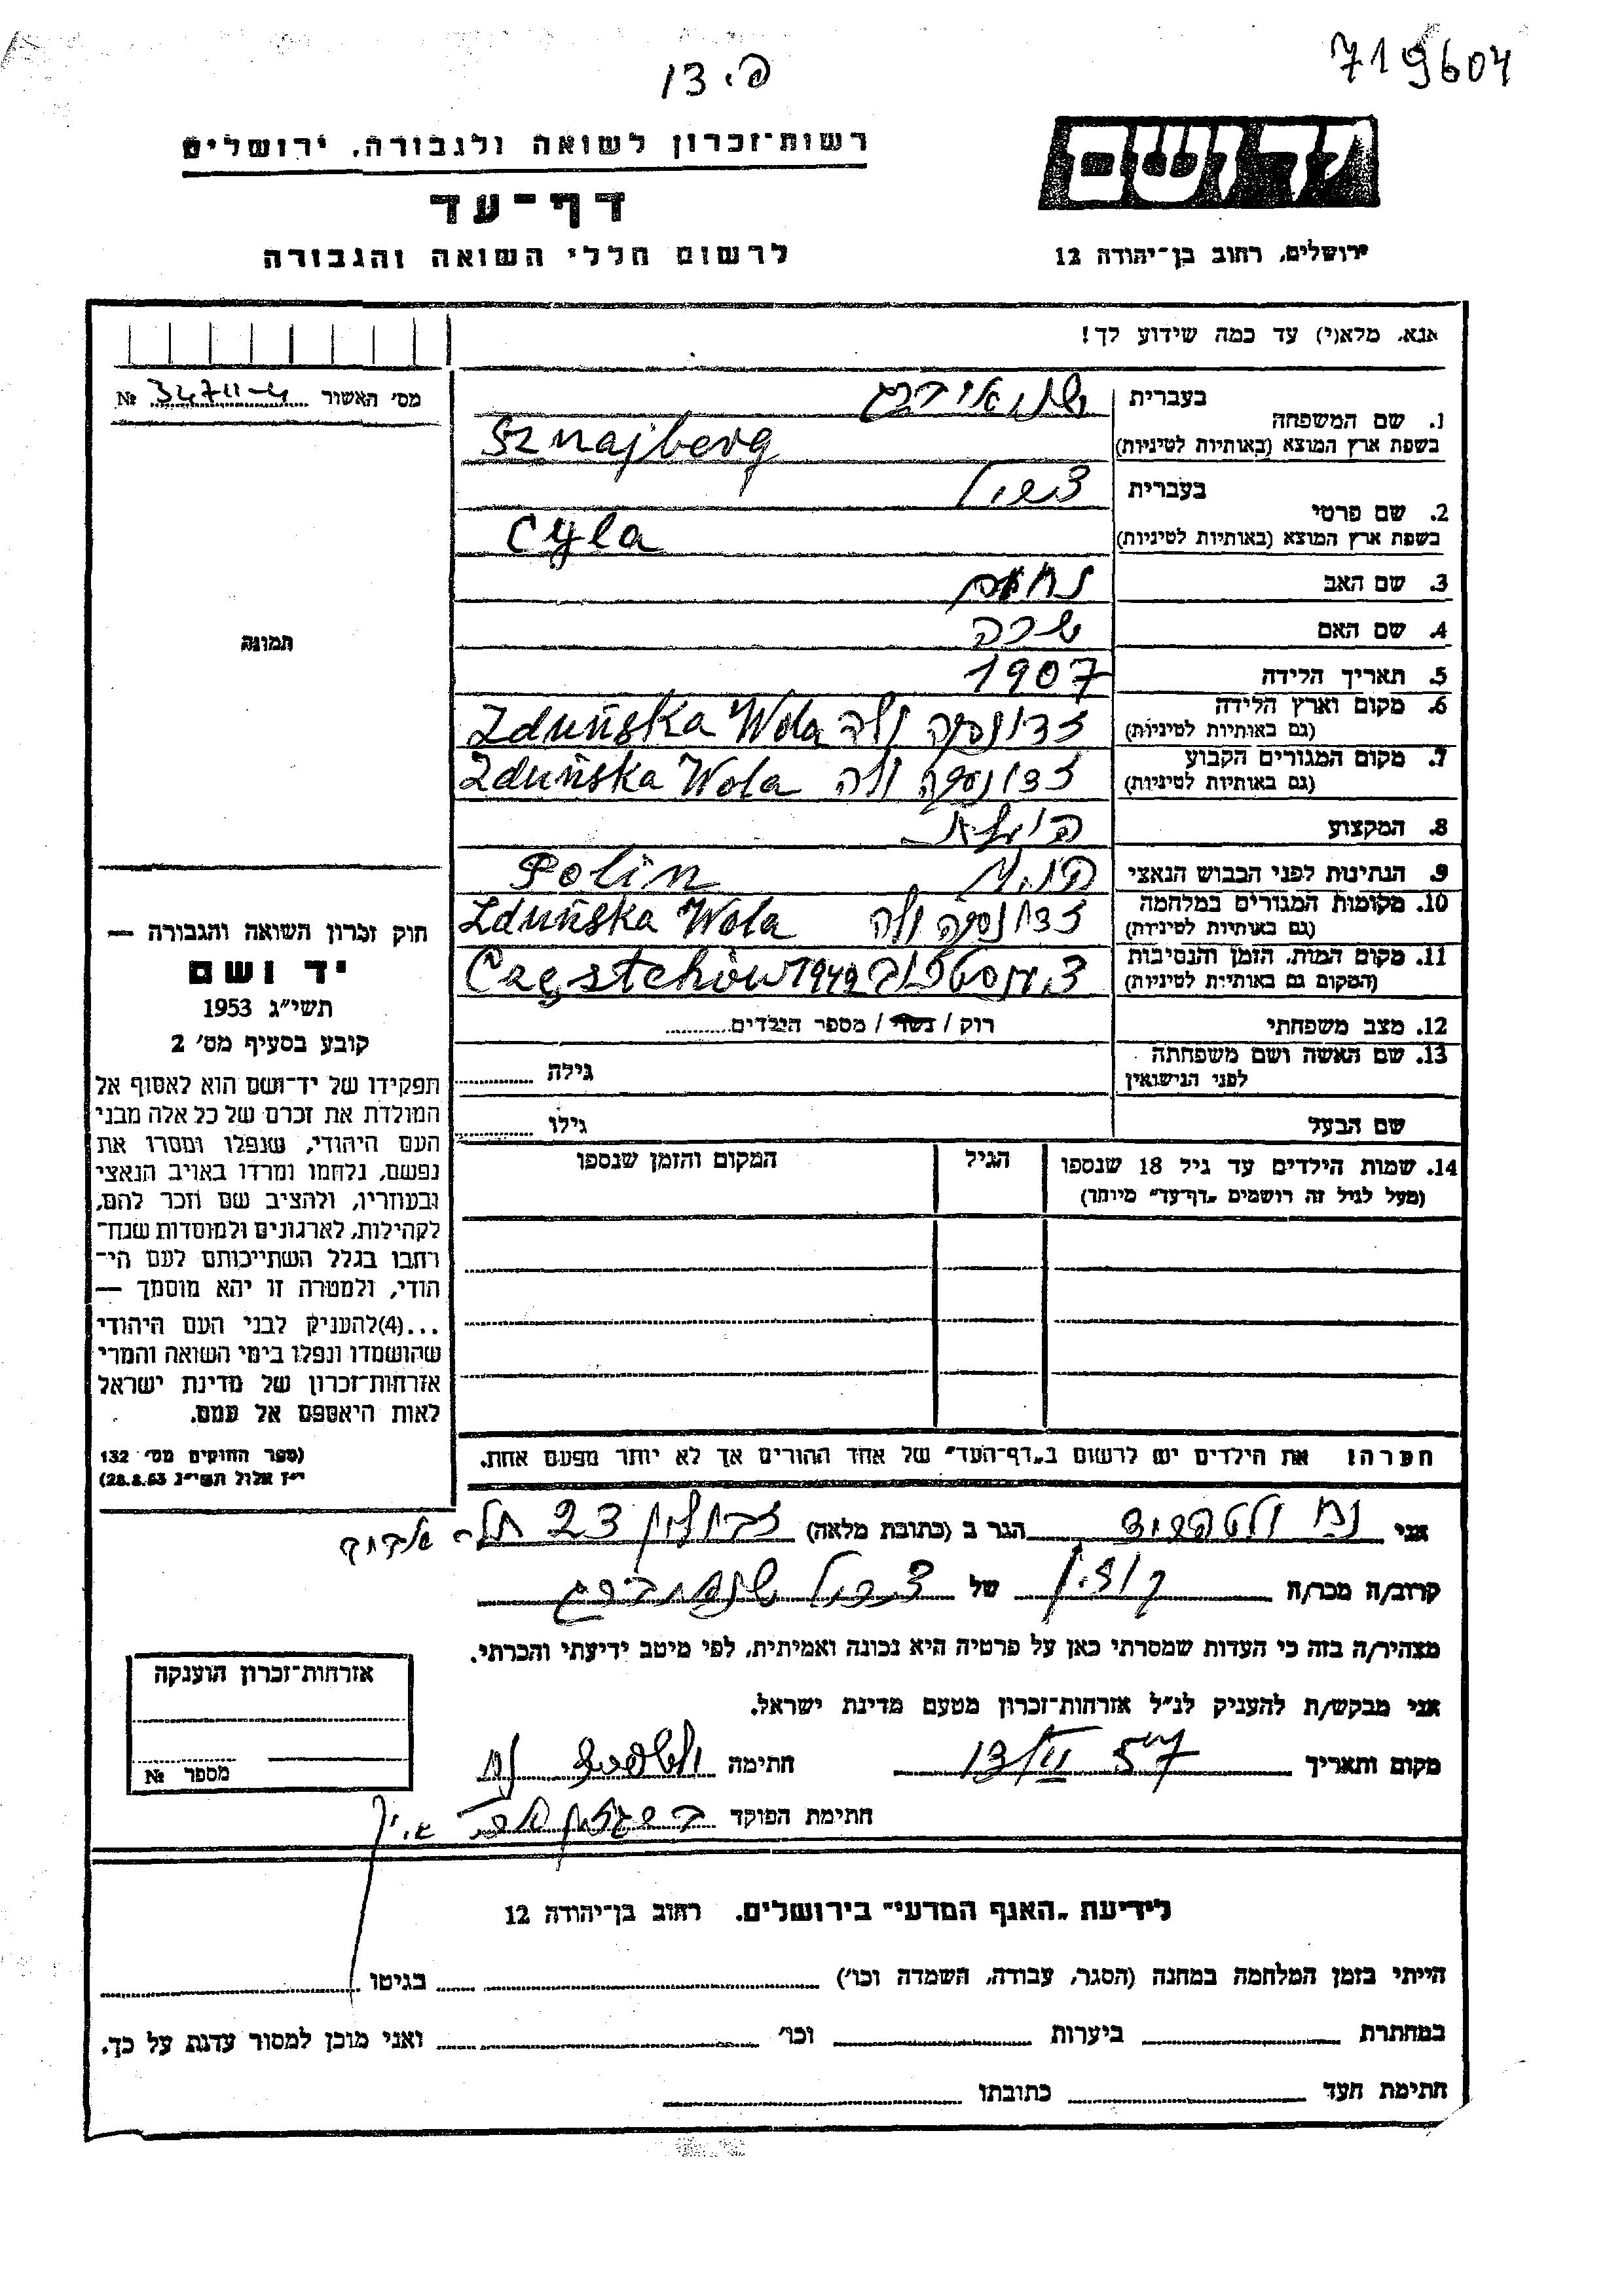 719604
פ. 13
רשות־זכרון לשואה ולגבורה. ירושלים
דף־עד
לרשום חללי השואה והגבורה
ידושם
ירושלים, רחוב בן־יהודה 12
אנא. מלא(י) עד כמה שידוע לך!
מס' האשור №
1. שם המשפחה
בעברית שניאידברג
בשפת ארץ המוצא (באותיות לטיניות) Sznajberg
2. שם פרטי
בעברית
בשפת ארץ המוצא (באותיות לטיניות) Cyla
3. שם האב נחום
4. שם האם שרה
5. תאריך הלידה 1907
6. מקום וארץ הלידה (גם באותיות לטיניות) זדונסקה וולה Zduńska Wola
7. מקום המגורים הקבוע (גם באותיות לטיניות) זדונסקה וולה Zduńska Wola
8. המקצוע
9. הנתינות לפני הכבוש הנאצי Polin
10. מקומות המגורים במלחמה (גם באותיות לטיניות) זדונסקה וולה Zduńska Wola
11. מקום המות. הזמן והנסיבות (המקום גם באותיות לטיניות) Częstchów 1942
12. מצב משפחתי רוק / נשוי / מספר הילדים
13. שם האשה ושם משפחתה לפני הנישואין גילה
שם הבעל גילו
14. שמות הילדים עד גיל 18 שנספו
(מעל לגיל זה רושמים "דף־עד" מיוחד)
הגיל
המקום והזמן שנספו
תמונה
חוק זכרון השואה והגבורה —
יד ושם
תשי"ג 1953
קובע בסעיף מס' 2
תפקידו של יד־ושם הוא לאסוף אל
המולדת את זכרם של כל אלה מבני
העם היהודי, שנפלו ומסרו את
נפשם, נלחמו ומרדו באויב הנאצי
ובעוזריו, ולהציב שם וזכר להם,
לקהילות, לארגונים ולמוסדות שנח־
רחבו בגלל השתייכותם לעם הי־
הודי, ולמטרה זו יהא מוסמך —
...(4)להעניק לבני העם היהודי
שהושמדו ונפלו בימי השואה והמרי
אזרחות־זכרון של מדינת ישראל
לאות היאספם אל עמם.
(ספר החוקים מס' 132
י"ז אלול תשי"ג 28.8.53)
הערה! את הילדים יש לרשום ב"דף־העד" של אחד ההורים אך לא יותר מפעם אחת.
אני הגר ב (כתובת מלאה) זבולון 23 תל-אביב
קרוב/ה מכר/ה של
מצהיר/ה בזה כי העדות שמסרתי כאן על פרטיה היא נכונה ואמיתית, לפי מיטב ידיעתי והכרתי.
אני מבקש/ת להעניק לנ"ל אזרחות־זכרון מטעם מדינת ישראל.
מקום ותאריך 13/II 57 חתימה
חתימת הפוקד
אזרחות־זכרון הוענקה
מספר №
לידיעת "האגף המדעי" בירושלים. רחוב בן־יהודה 12
הייתי בזמן המלחמה במחנה (הסגר, עבודה, השמדה וכו') בגיטו
במחתרת ביערות וכו' ואני מוכן למסור עדות על כך.
חתימת העד כתובתו